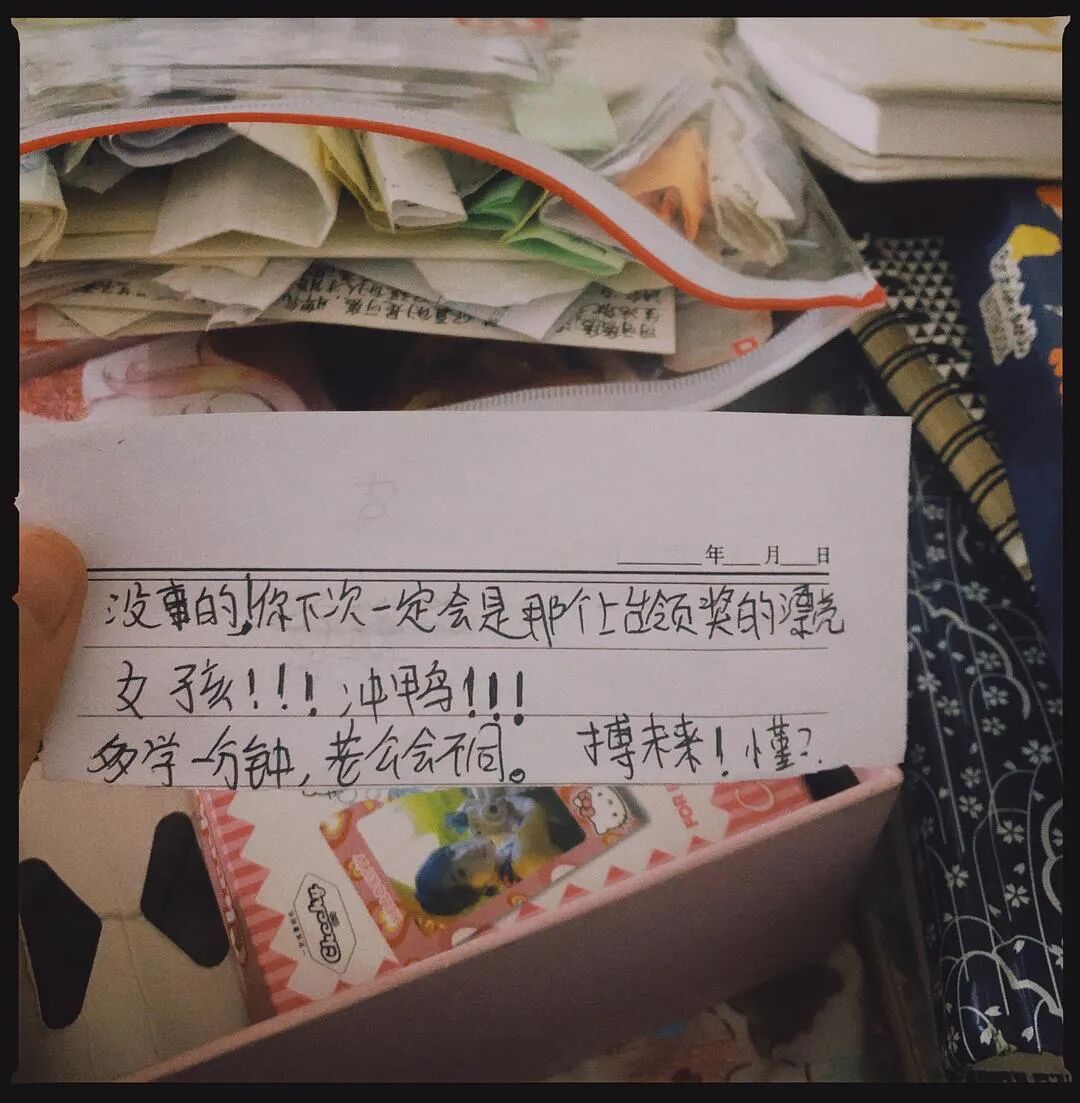 年 月 日
没事的!你下次一定会是那个上台领奖的漂亮
女孩!!!冲鸭!!!
多学一分钟,老公会不同。 搏未来!懂?